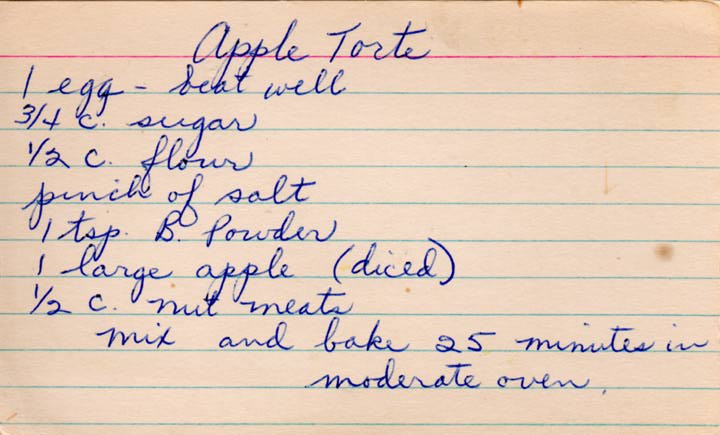 Apple Torte
1 egg - beat well
3/4 c. sugar
1/2 c. flour
pinch of salt
1 tsp. B. Powder
1 large apple (diced)
1/2 c. nut meats
mix and bake 25 minutes in
moderate oven.